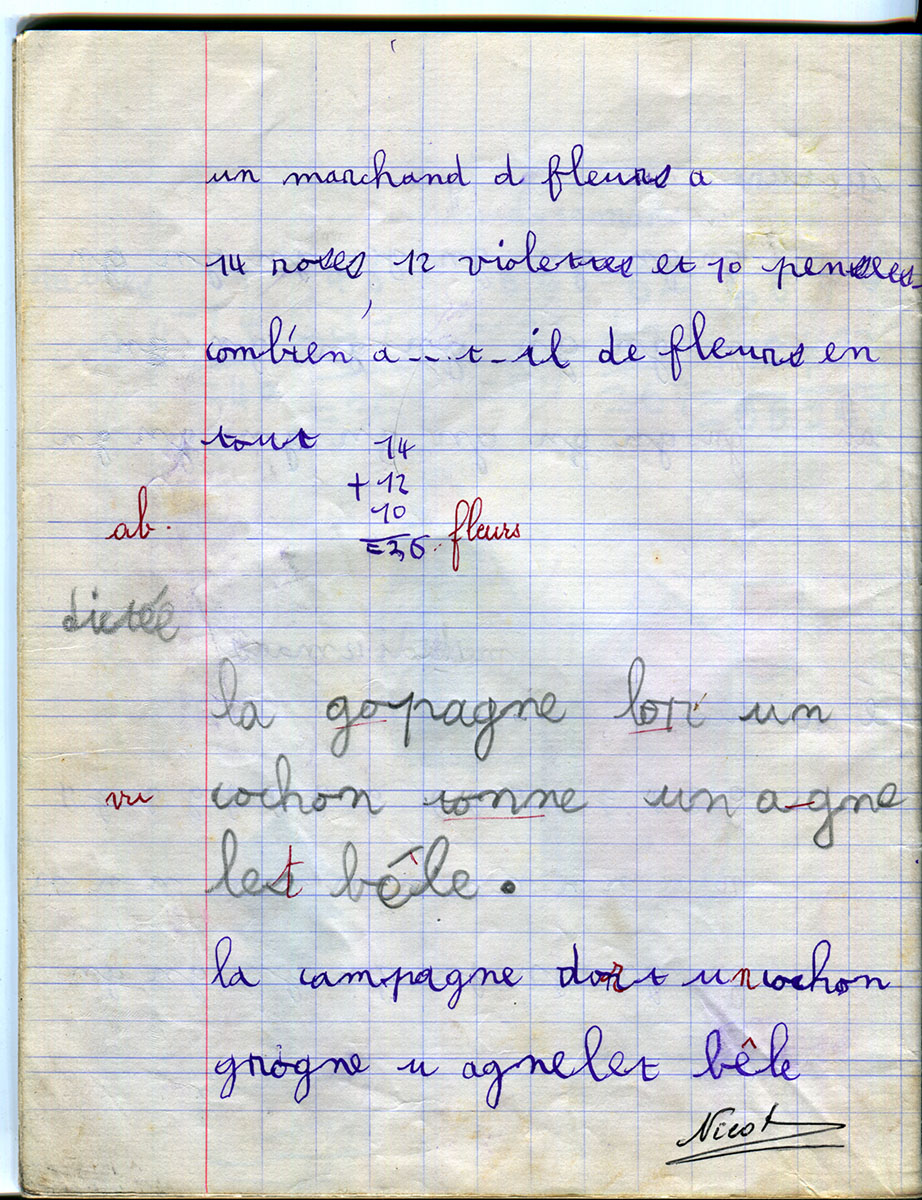 un marchand d fleurs a
14 roses 12 violettes et 10 pensees
combien a -- t - il de fleurs en
tout
14
+ 12
10
= 36. fleurs
ab.
dictée
la gopagne lori un
vu cochon tonne un a-gne
let bêle.
la campagne dort un cochon
grogne u agnelet bêle
Nicot